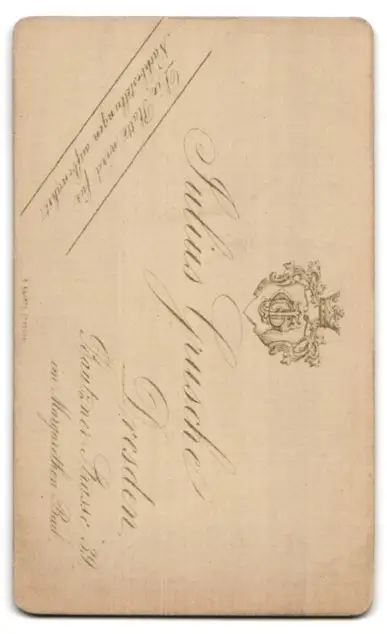 Julius Grusche
Dresden
Bautzner Strasse 39
im Margarethen Bad.
Die Platte wird für
Nachbestellungen aufbewahrt.